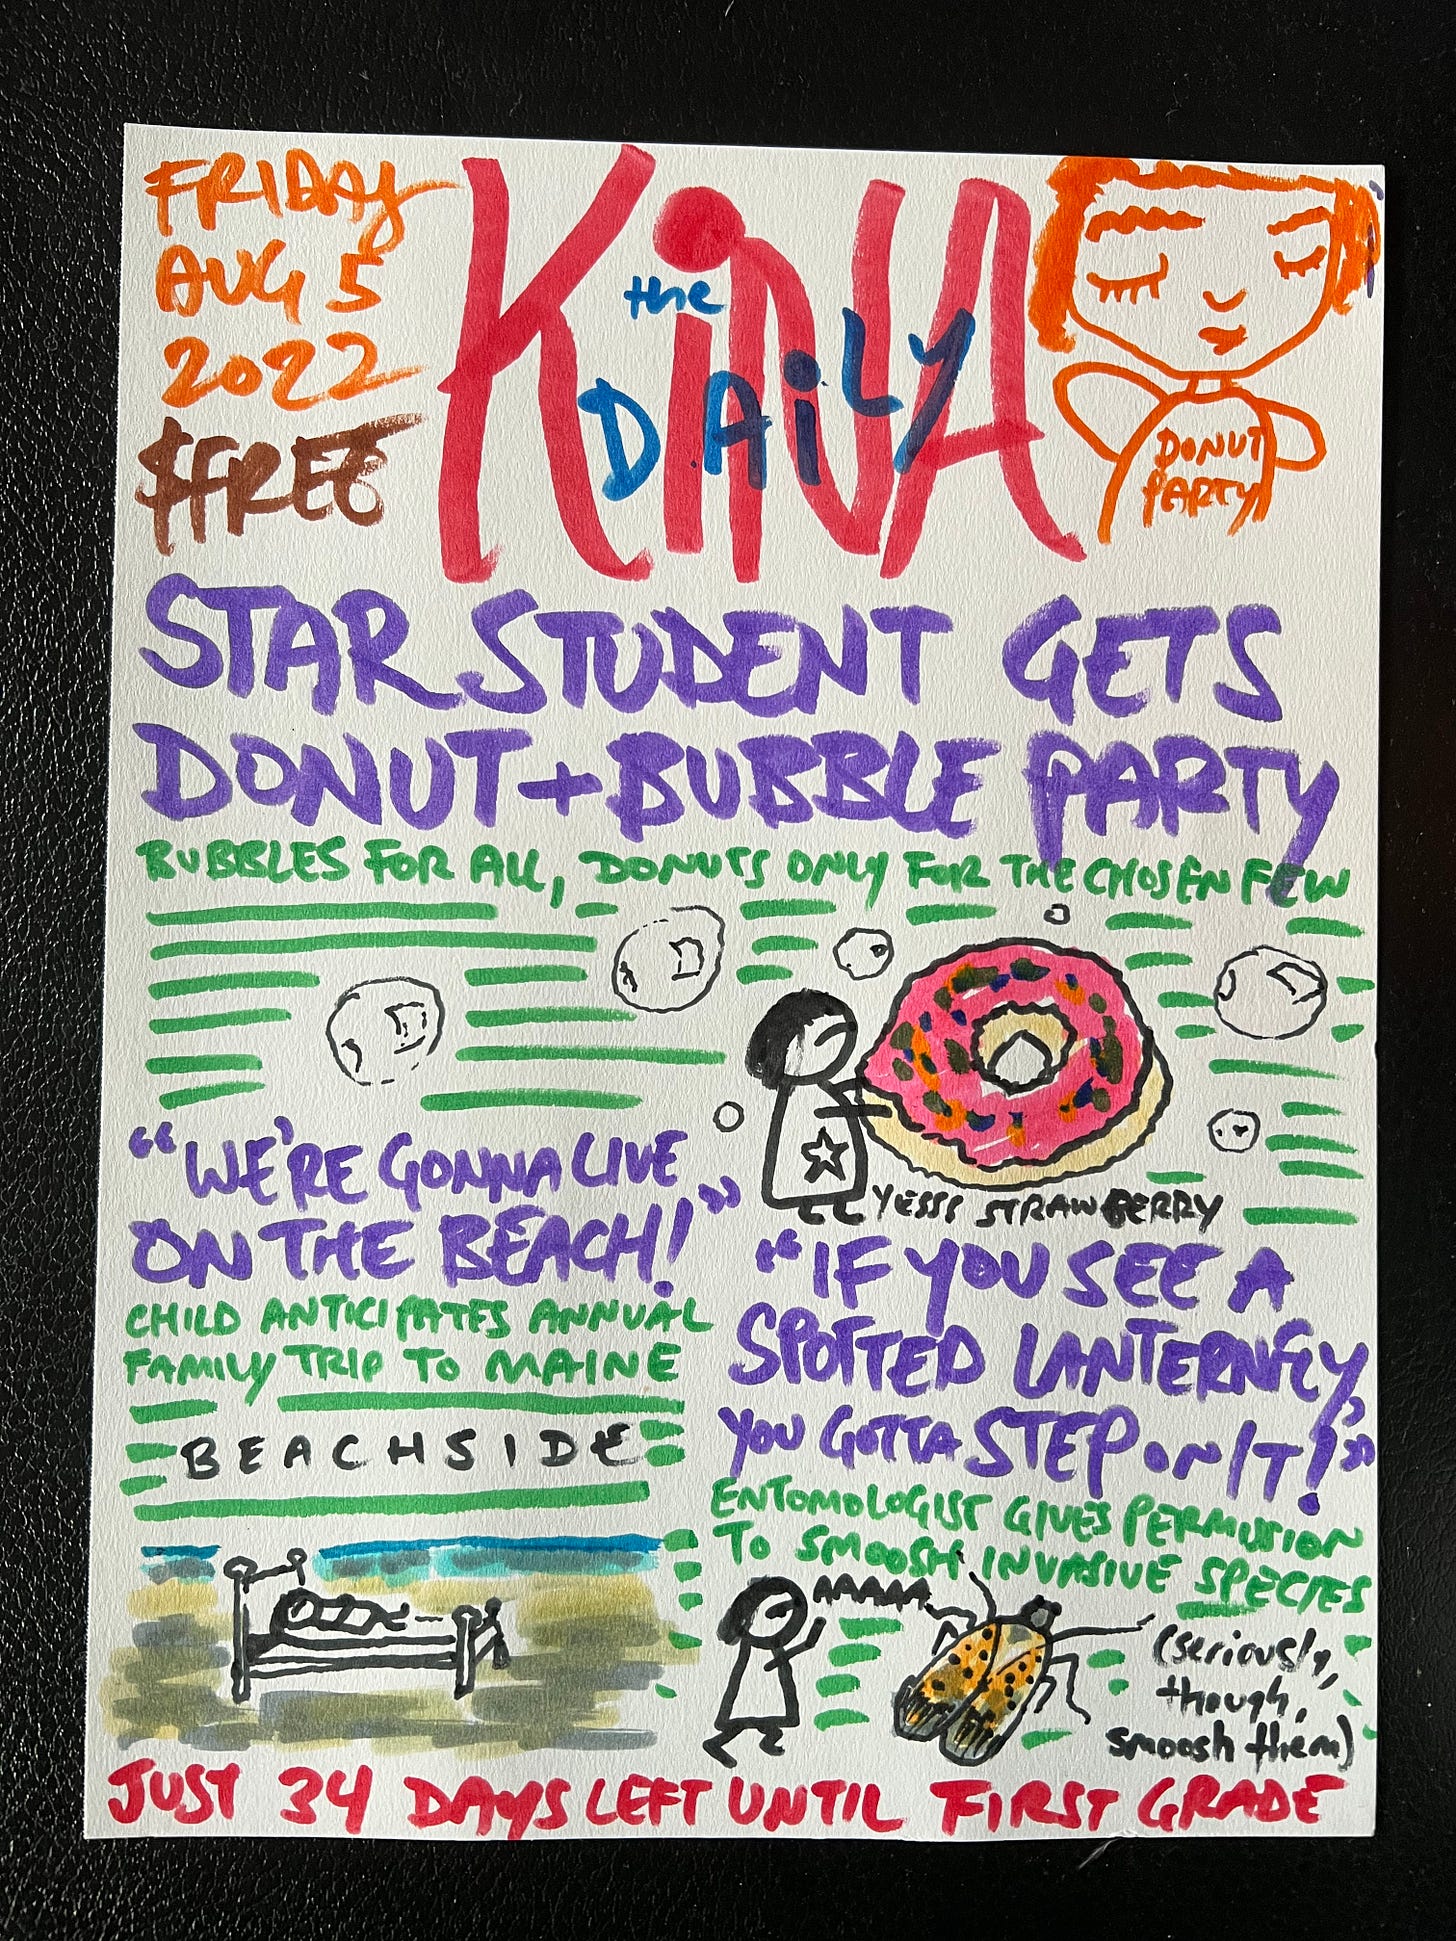 FRIDAY
AUG 5
2022
$FREE
the
KiNA
DAiLY
DONUT
PARTY
STAR STUDENT GETS
DONUT + BUBBLE PARTY
BUBBLES FOR ALL, DONUTS ONLY FOR THE CHOSEN FEW
YESSS STRAWBERRY
"WE'RE GONNA LIVE
ON THE BEACH!"
CHILD ANTICIPATES ANNUAL
FAMILY TRIP TO MAINE
BEACHSIDE
"IF YOU SEE A
SPOTTED LANTERNFLY,
YOU GOTTA STEP ON IT!"
ENTOMOLOGIST GIVES PERMISSION
TO SMOOSH INVASIVE SPECIES
AAAAA
(seriously,
though,
smoosh them)
JUST 34 DAYS LEFT UNTIL FIRST GRADE